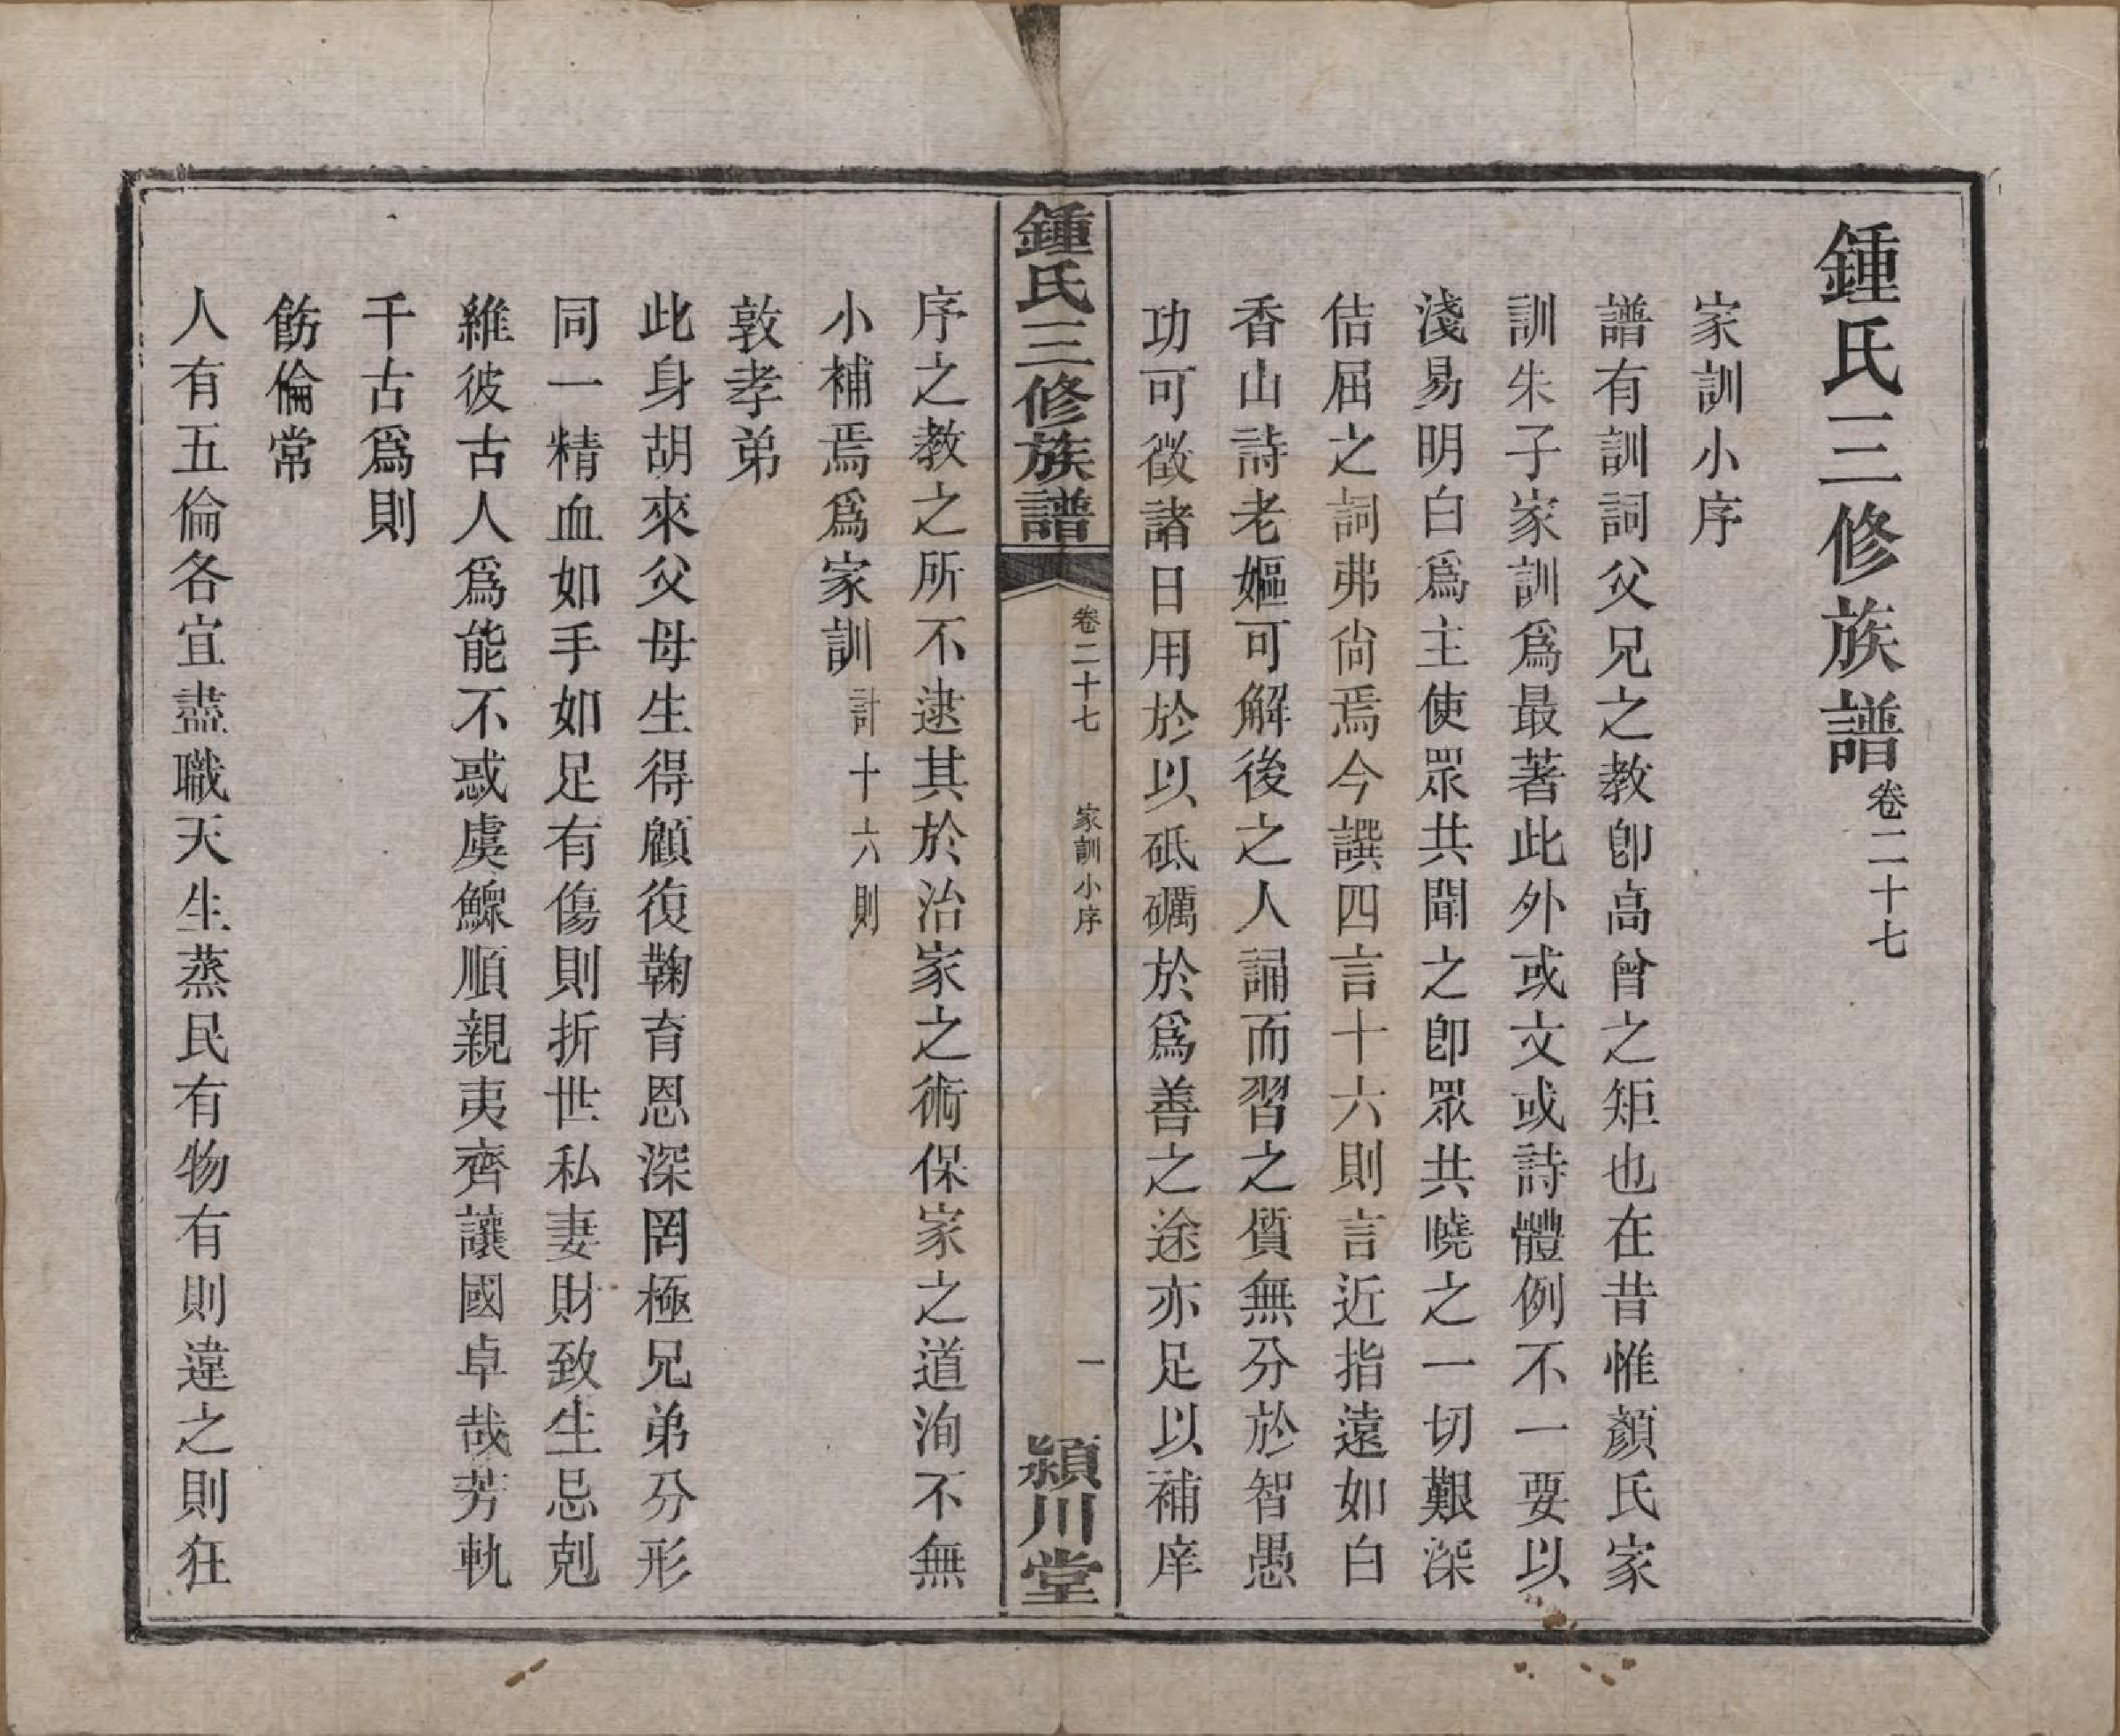 鍾氏三修族譜卷二十七
家訓小序
譜有訓詞父兄之教卽高曾之矩也在昔惟顏氏家
訓朱子家訓爲最著此外或文或詩體例不一要以
淺易明白爲主使眾共聞之卽眾共曉之一切艱深
佶屈之詞弗尙焉今譔四言十六則言近指遠如白
香山詩老嫗可解後之人誦而習之質無分於智愚
功可徵諸日用於以砥礪於爲善之途亦足以補庠
鍾氏三修族譜
卷二十七
家訓小序
一
潁川堂
序之教之所不逮其於治家之術保家之道洵不無
小補焉爲家訓計十六則
敦孝弟
此身胡來父母生得顧復鞠育恩深罔極兄弟分形
同一精血如手如足有傷則折世私妻財致生忌剋
維彼古人爲能不惑虞鰥順親夷齊讓國卓哉芳軌
千古爲則
飭倫常
人有五倫各宜盡職天生蒸民有物有則違之則狂